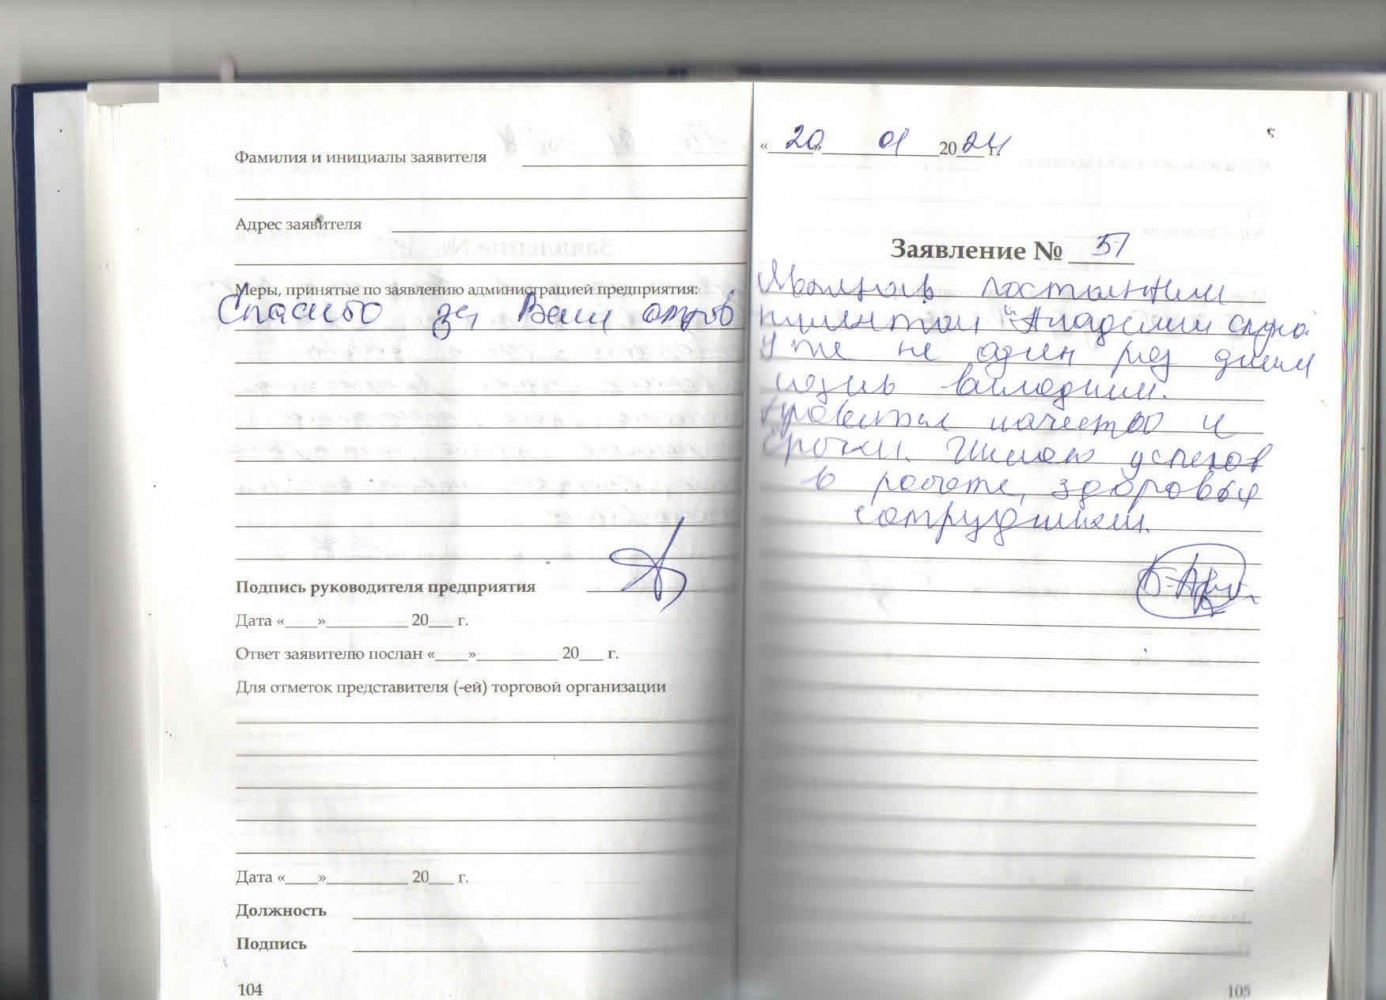 Фамилия и инициалы заявителя
Адрес заявителя
Меры, принятые по заявлению администрацией предприятия:
Спасибо за Ваш отзыв
Подпись руководителя предприятия
Дата «___»__________ 20___ г.
Ответ заявителю послан «___»__________ 20___ г.
Для отметок представителя (-ей) торговой организации
Дата «___»__________ 20___ г.
Должность
Подпись
104
«20» 01 2024 г.
Заявление № 51
постоянным
клиентом "Академии слуха
Уже не один раз
качество и
сроки. Желаю успехов
в работе, здоровья
сотрудникам.
105